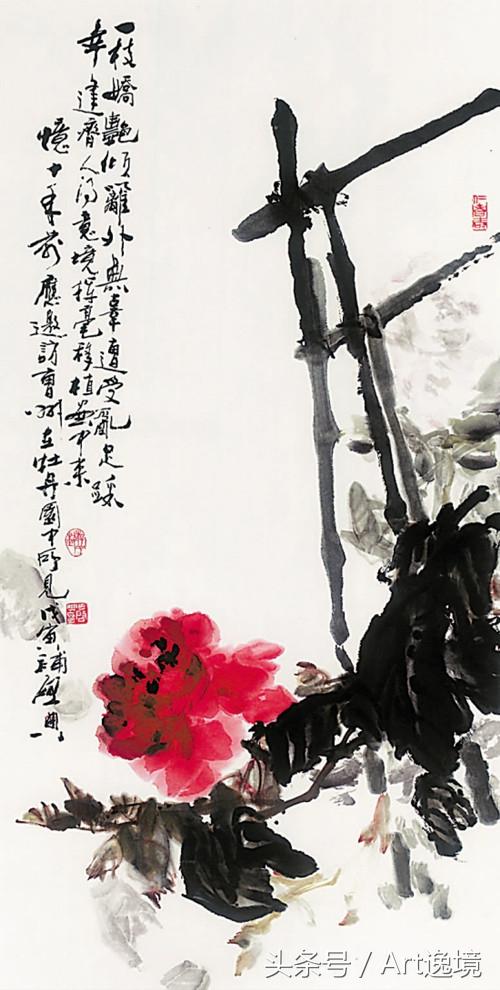 一枝嬌艷傾籬外無辜遭受亂足踩
幸逢濟人得意境揮毫移植畫中來
憶十年前應邀訪曹州在牡丹園中所見戊寅補
仁者壽
头条号 / Art逸境